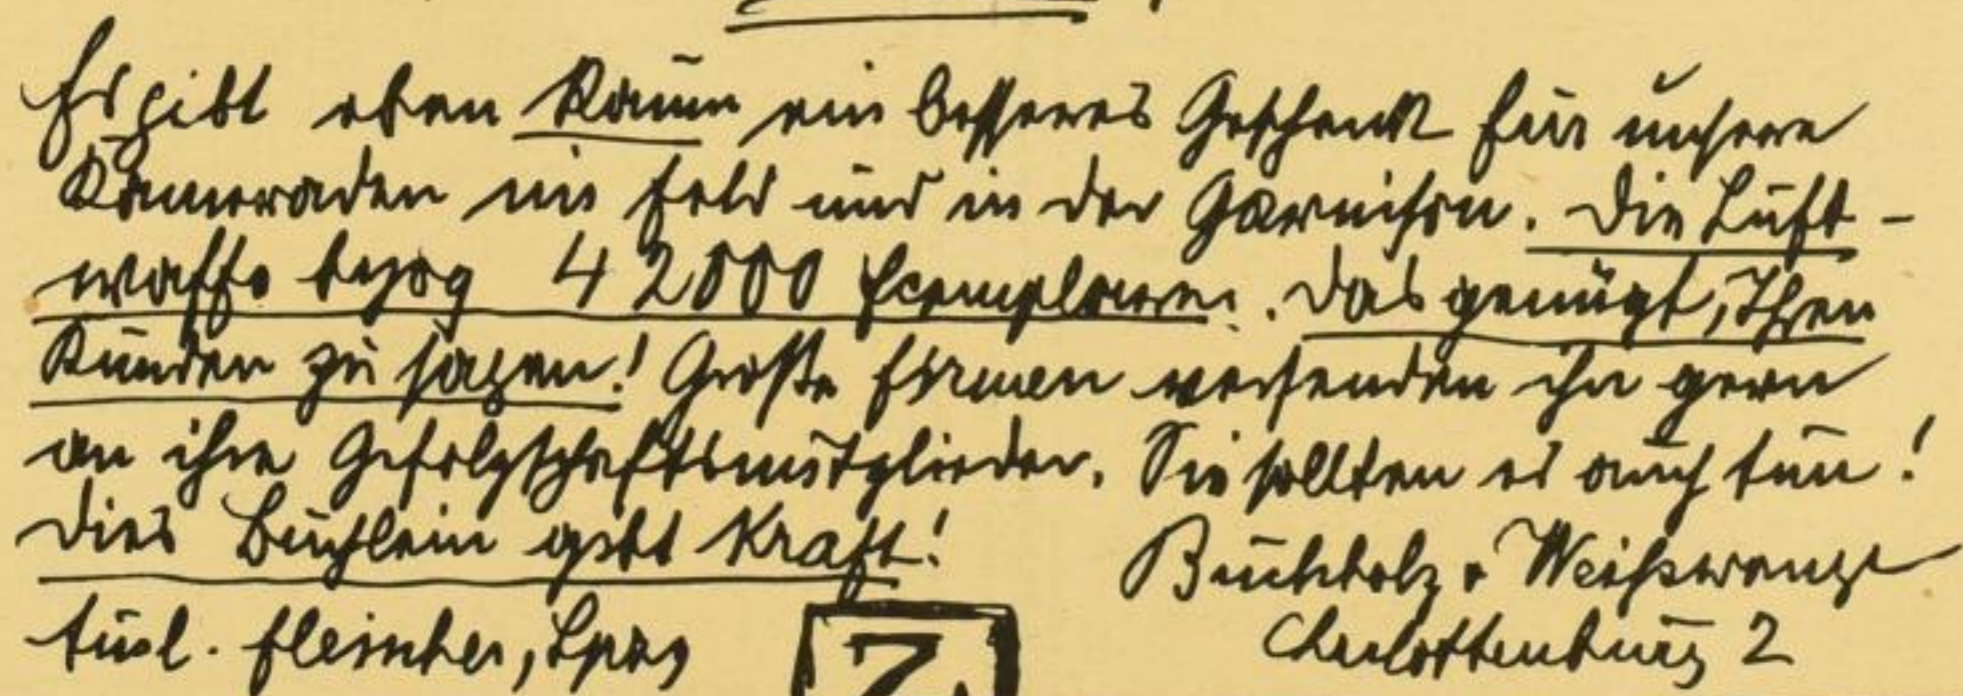 Es gibt eben kaum ein besseres Geschenk für unsere
Kameraden im Feld und in der Garnison. Die Luft-
waffe bezog 42000 Exemplare. Das genügt, Ihren
Kunden zu sagen! Große Firmen versenden ihn gern
an ihre Gefolgschaftsmitglieder. Sie sollten es auch tun!
Dies Büchlein gibt Kraft!
Buchholz & Weißwange
Ausl. Fleischer, Lpzg
Charlottenburg 2
Z